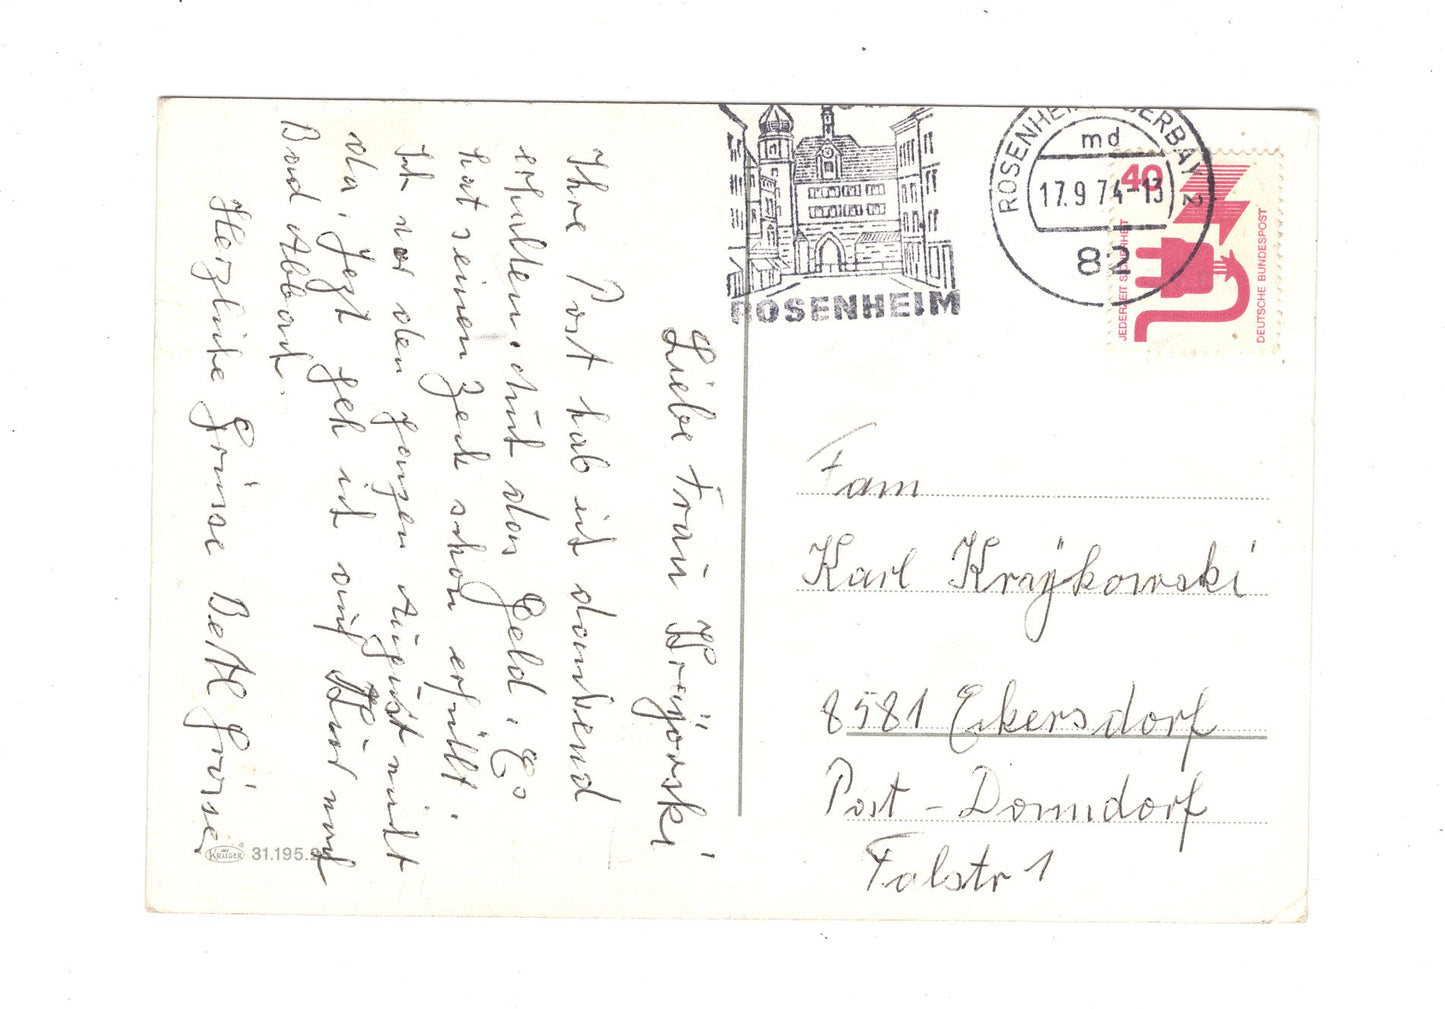 Liebe Frau Krÿkowski
Ihre Post hab ich dankend
erhalten, auch das Geld. Es
hat seinen Zweck schon erfüllt.
Ich war den ganzen August nicht
da. Jezt geh ich auf Kur nach
Bad Abbach.
Herzliche Grüsse Betti
KRÜGER 31.195.
ROSENHEIM
md
17.9.74-13
82
2
40
JEDERZEIT SICHERHEIT
DEUTSCHE BUNDESPOST
Fam
Karl Krÿkowski
8581 Eckersdorf
Post - Donndorf
Talstr 1